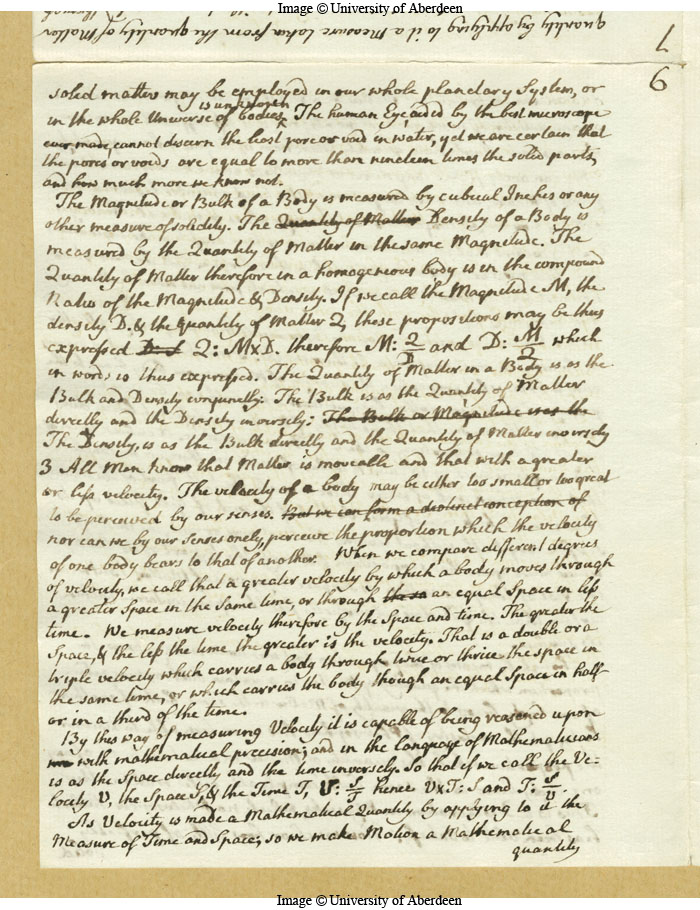 Image © University of Aberdeen
quantity by applying to it a Measure taken from the quantity of Matter
7
6
solid matter may be employed in our whole planetary System, or
is unknown
in the whole Universe of bodies. The human Eye aided by the best microscope
ever made, cannot discern the least pore or void in water, yet we are certain that
the pores or voids are equal to more than nineteen times the solid parts,
and how much more we know not.
The Magnitude or Bulk of a Body is measured by cubical Inches or any
other measure of solidity. The Quantity of Matter Density of a Body is
measured by the Quantity of Matter in the same Magnitude. The
Quantity of Matter therefore in a homogeneous body is in the compound
Ratio of the Magnitude & Density. If we call the Magnitude M, the
density D. & the Quantity of Matter Q, these propositions may be thus
expressed Q: M×D. therefore M: Q/D and D: M/Q which
in words is thus expressed. The Quantity of Matter in a Body is as the
Bulk and Density conjunctly: The Bulk is as the Quantity of Matter
directly and the Density inversely; The Bulk or Magnitude is as the
The Density, is as the Bulk directly and the Quantity of Matter inversely
3 All Men know that Matter is moveable and that with a greater
or less velocity. The velocity of a body may be either too small or too great
to be perceived by our senses. But we can form a distinct conception of
nor can we by our Senses onely, perceive the proportion which the velocity
of one body bears to that of another. When we compare different degrees
of velocity, we call that a greater velocity by which a body moves through
a greater Space in the same time, or through the sa an equal Space in less
time. We measure velocity therefore by the Space and time. The greater the
Space, & the less the time the greater is the velocity. That is a double or a
triple velocity which carries a body through twice or thrice the space in
the same time, or which carries the body though an equal Space in half
or in a third of the time.
By this way of measuring Velocity it is capable of being reasoned upon
with mathematical precision; and in the language of Mathematicians
is as the Space directly and the time inversely. So that if we call the Ve-
locity V, the Space S, & the Time T, V: S/T hence V×T: S and T: S/V.
As Velocity is made a Mathematical Quantity by applying to it the
Measure of Time and Space; so we make Motion a Mathematical
quantity
Image © University of Aberdeen